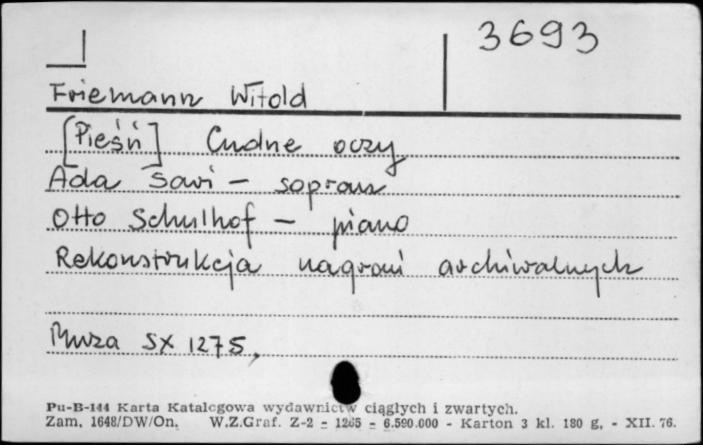 3693
Friemann Witold
[Pieśń] Cudne oczy
Ada Sari - sopran
Otto Schulhof - piano
Rekonstrukcja nagrań archiwalnych
Muza SX 1275,
Pu-B-144 Karta Katalogowa wydawnictw ciągłych i zwartych.
Zam. 1648/DW/On. W.Z.Graf. Z-2 - 1265 - 6.590.000 - Karton 3 kl. 180 g. - XII. 76.